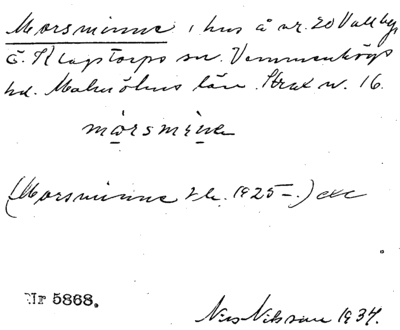 Morsminne, hus å nr. 20 Vallby,
ä. Klagstorps sn. Vemmenhögs
hd. Malmöhus län. Strax n. 16.
mårsmine
(Morsminne 1925–) exc
Nr 5868.
Nils Nilsson 1937.